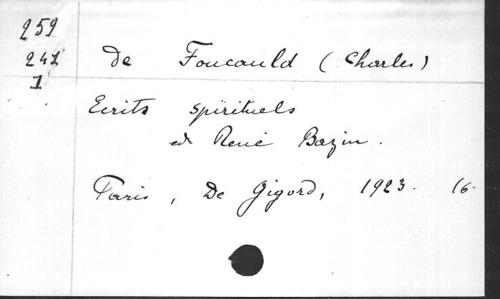 259
241
1
de Foucauld (Charles)
Ecrits spirituels
ed René Bazin.
Paris, De Gigord, 1923. 16.